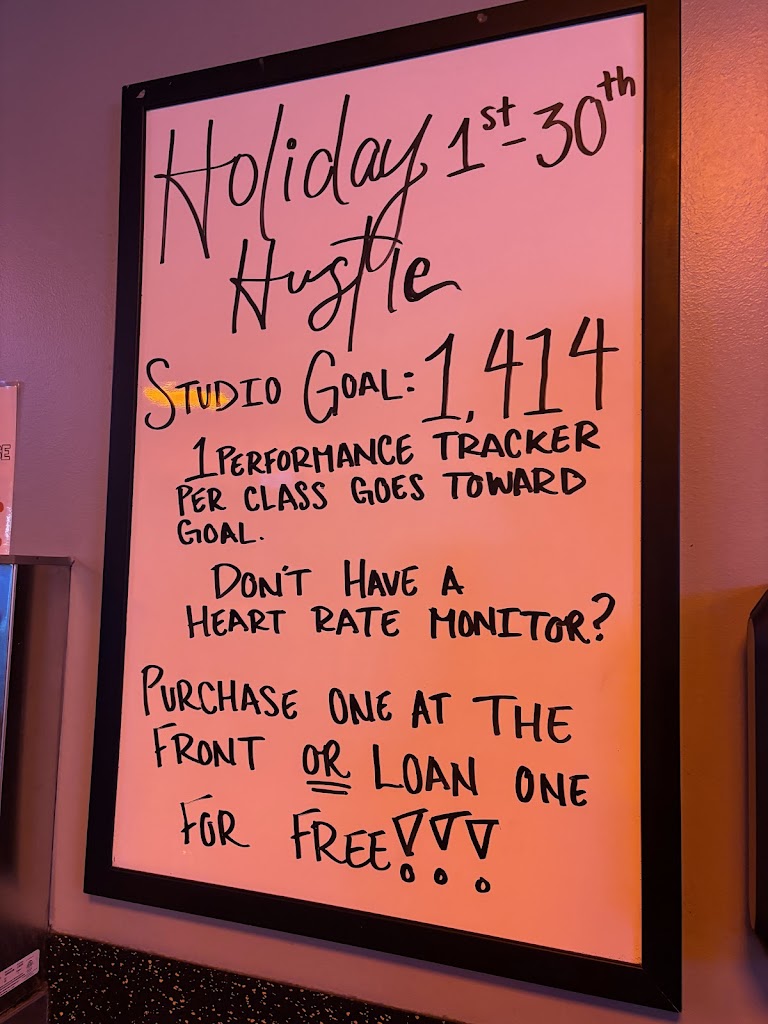 Holiday 1st-30th
Hustle
STUDIO GOAL: 1,414
1 PERFORMANCE TRACKER
PER CLASS GOES TOWARD
GOAL.
DON'T HAVE A
HEART RATE MONITOR?
PURCHASE ONE AT THE
FRONT OR LOAN ONE
FOR FREE!!!